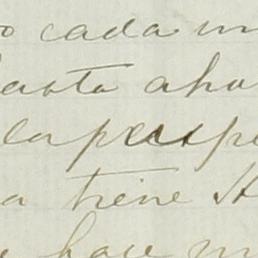 o cada un
asta aho
la persp
a tiene H
e hace m